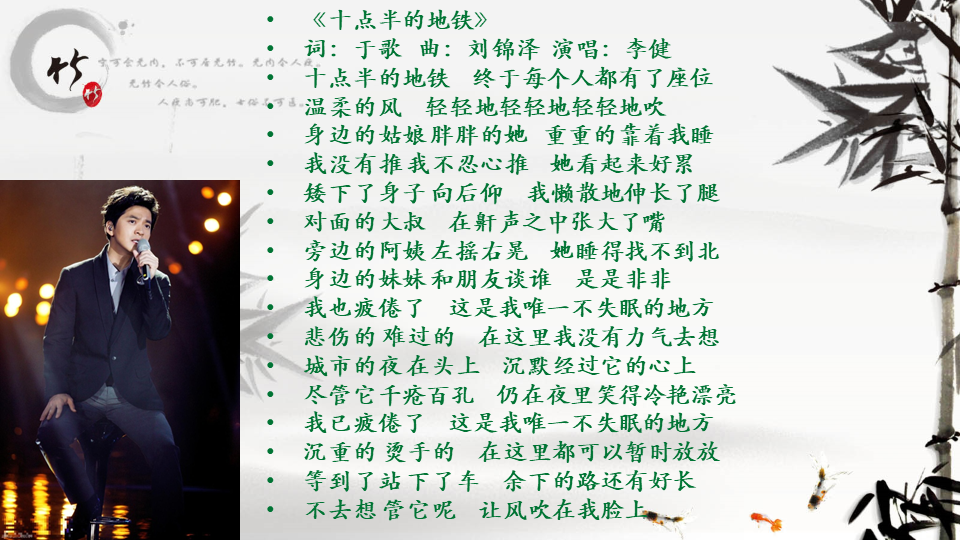 竹
竹
宁可食无肉,不可居无竹。无肉令人瘦,
无竹令人俗。
人瘦尚可肥,士俗不可医。
• 《十点半的地铁》
• 词:于歌 曲:刘锦泽 演唱:李健
• 十点半的地铁 终于每个人都有了座位
• 温柔的风 轻轻地轻轻地轻轻地吹
• 身边的姑娘胖胖的她 重重的靠着我睡
• 我没有推我不忍心推 她看起来好累
• 矮下了身子向后仰 我懒散地伸长了腿
• 对面的大叔 在鼾声之中张大了嘴
• 旁边的阿姨左摇右晃 她睡得找不到北
• 身边的妹妹和朋友谈谁 是是非非
• 我也疲倦了 这是我唯一不失眠的地方
• 悲伤的 难过的 在这里我没有力气去想
• 城市的夜 在头上 沉默经过它的心上
• 尽管它千疮百孔 仍在夜里笑得冷艳漂亮
• 我已疲倦了 这是我唯一不失眠的地方
• 沉重的 烫手的 在这里都可以暂时放放
• 等到了站 下了车 余下的路还有好长
• 不去想 管它呢 让风吹在我脸上